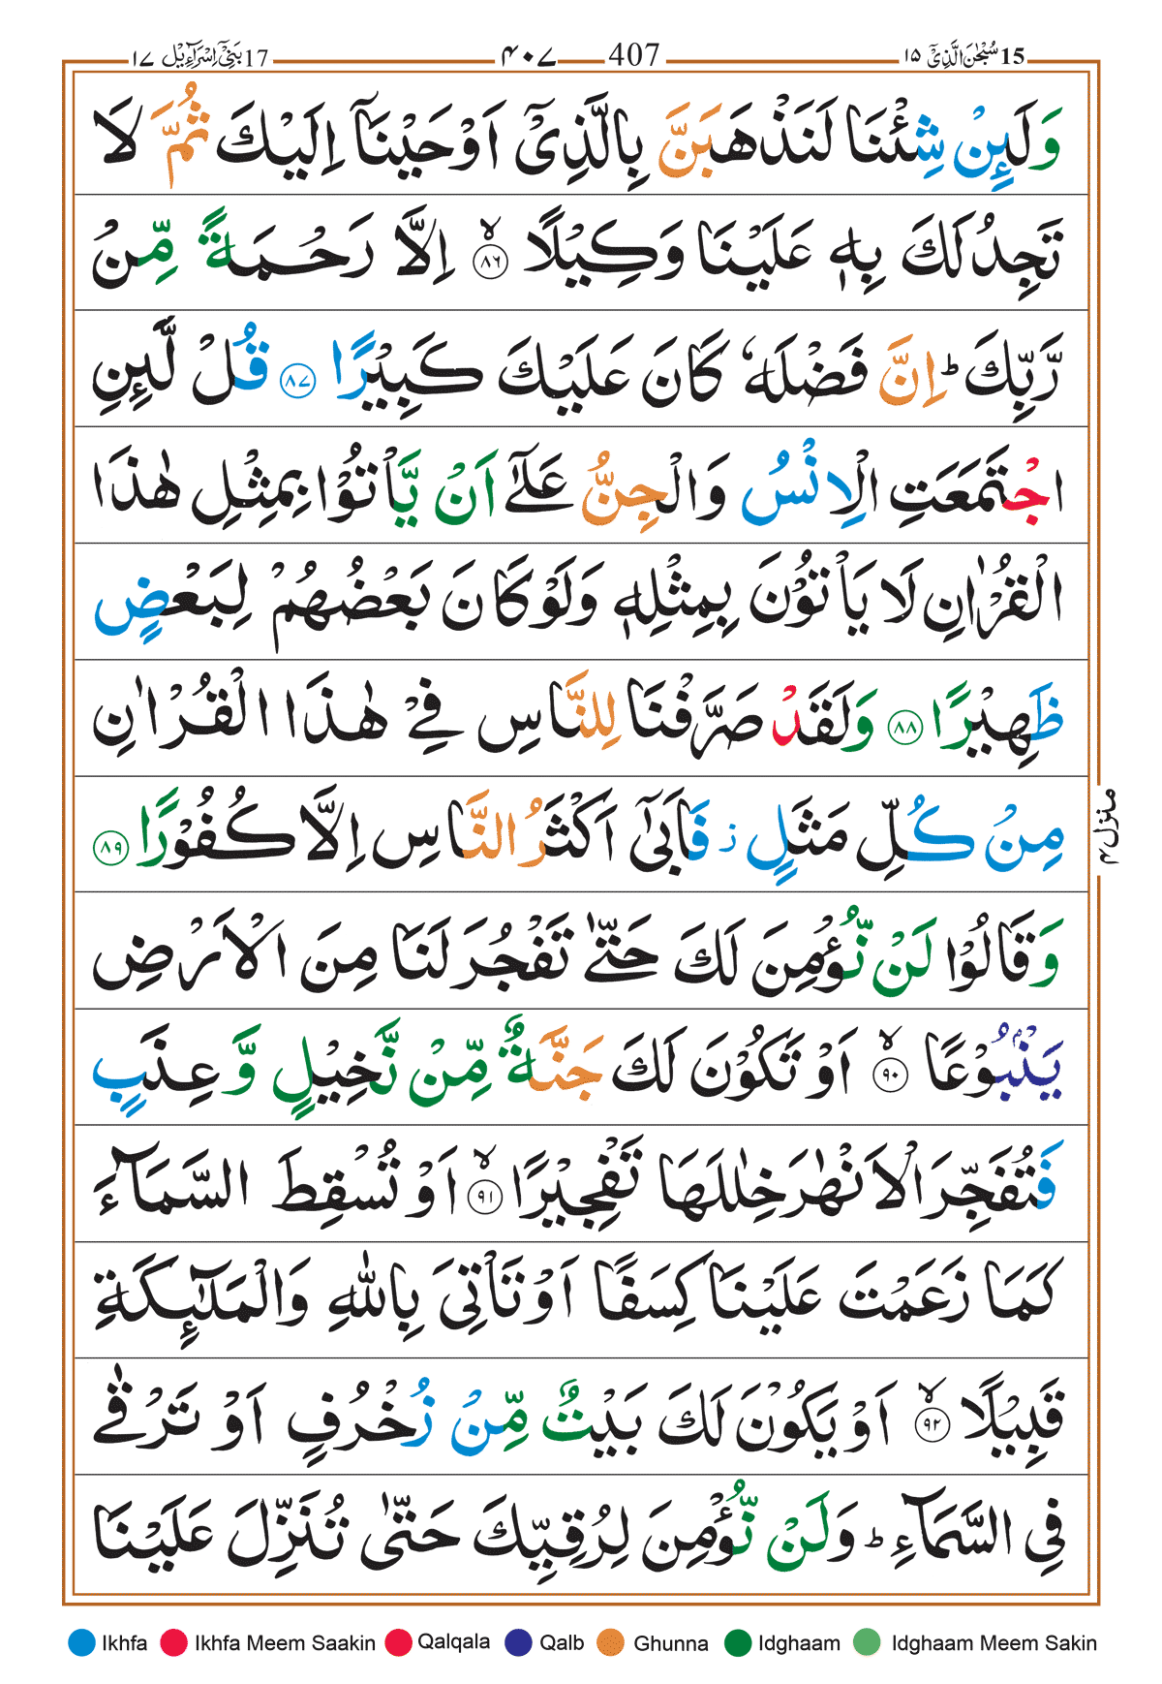 15 سُبْحٰنَ الَّذِیْۤ ١۵ 407 ۴۰۷ 17 بَنِیْۤ اِسْرَآءِیْل ١٧
وَلَىِٕنْ شِئْنَا لَنَذْهَبَنَّ بِالَّذِیْۤ اَوْحَیْنَاۤ اِلَیْكَ ثُمَّ لَا
تَجِدُ لَكَ بِهٖ عَلَیْنَا وَكِیْلًا ۙ ﴿٨٦﴾ اِلَّا رَحْمَةً مِّنْ
رَّبِّكَ ؕ اِنَّ فَضْلَهٗ كَانَ عَلَیْكَ كَبِیْرًا ﴿٨٧﴾ قُلْ لَّىِٕنِ
اجْتَمَعَتِ الْاِنْسُ وَالْجِنُّ عَلٰۤی اَنْ یَّاْتُوْا بِمِثْلِ هٰذَا
الْقُرْاٰنِ لَا یَاْتُوْنَ بِمِثْلِهٖ وَلَوْ كَانَ بَعْضُهُمْ لِبَعْضٍ
ظَهِیْرًا ﴿٨٨﴾ وَلَقَدْ صَرَّفْنَا لِلنَّاسِ فِیْ هٰذَا الْقُرْاٰنِ
مِنْ كُلِّ مَثَلٍ ؗ فَاَبٰۤی اَكْثَرُ النَّاسِ اِلَّا كُفُوْرًا ﴿٨٩﴾
وَقَالُوْا لَنْ نُّؤْمِنَ لَكَ حَتّٰی تَفْجُرَ لَنَا مِنَ الْاَرْضِ
یَنْۢبُوْعًا ۙ ﴿٩٠﴾ اَوْ تَكُوْنَ لَكَ جَنَّةٌ مِّنْ نَّخِیْلٍ وَّعِنَبٍ
فَتُفَجِّرَ الْاَنْهٰرَ خِلٰلَهَا تَفْجِیْرًا ۙ ﴿٩١﴾ اَوْ تُسْقِطَ السَّمَآءَ
كَمَا زَعَمْتَ عَلَیْنَا كِسَفًا اَوْ تَاْتِیَ بِاللّٰهِ وَالْمَلٰٓىِٕكَةِ
قَبِیْلًا ۙ ﴿٩٢﴾ اَوْ یَكُوْنَ لَكَ بَیْتٌ مِّنْ زُخْرُفٍ اَوْ تَرْقٰی
فِی السَّمَآءِ ؕ وَلَنْ نُّؤْمِنَ لِرُقِیِّكَ حَتّٰی تُنَزِّلَ عَلَیْنَا
منزل ۴
Ikhfa Ikhfa Meem Saakin Qalqala Qalb Ghunna Idghaam Idghaam Meem Sakin